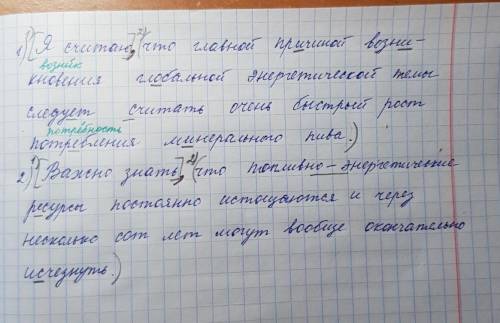 1) [Я считаю], 2) (что главной причиной возни-
возник
кновения глобальной энергетической темы
следует считать очень быстрый рост
потребность
потребления минерального пива.)
2) 1) [Важно знать], 2) (что топливно-энергетические
ресурсы постоянно истощаются и через
несколько сот лет могут вообще окончательно
исчезнуть.)